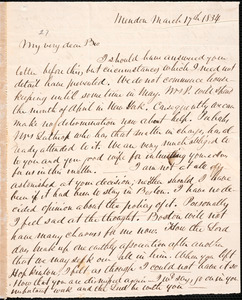 Mendon March 17th 1834
My very dear Bro
I should have answered your
letter before this, but circumstances which I need not
detail have prevented. We do not commence house
keeping until some time in May. Mrs P. will spend
the month of April in New York. Consequently we can
make no determination now about help. Perhaps
Mrs Lathrop who has that matter in charge, has al
ready attended to it. We are very much obliged to
to you and your good wife for interesting yourselves
for us in this matter. I am not at all
astonished at your decision, neither should I have
been if I had been to stay in Boston. I have no de
cided opinion about the policy of it. Personally
I feel sad at the thought. Boston will not
have many charms for me now. How the Lord
does break up our earthly associations after another
that we may seek our all in him. When you left
Hopkinton, I felt as though I could not have it so
Now that you are dismissed again
important work and the Lord be with you